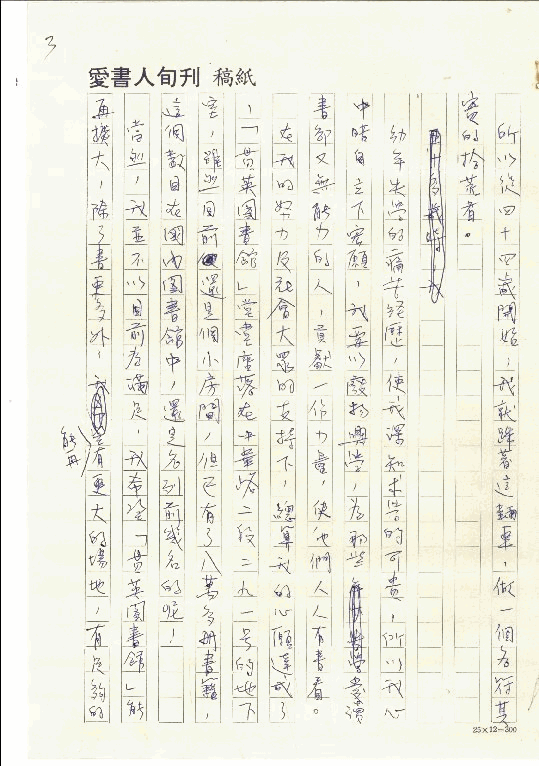 3
愛書人旬刊 稿紙
所以從四十四歲開始，我就踩著這輛車，做一個名符其
實的拾荒者。
幼年失學的痛苦經歷，使我深知求學的可貴，所以我心
中暗自立下宏願，我要以廢物興學，為那些要讀
書卻又無能力的人，貢獻一份力量，使他們人人有書看。
在我的努力及社會大眾的支持下，總算我的心願達成了
，「貫英圖書館」堂堂座落在重慶路二段二九一号的地下
室，雖然目前還是個小房間，但已有了八萬多冊書籍，
這個數目在國內圖書館中，還是名列前幾名的呢！
當然，我並不以目前為滿足，我希望「貫英圖書館」能
再擴大，除了書更多外，能再有更大的場地，有足夠的
25×12=300